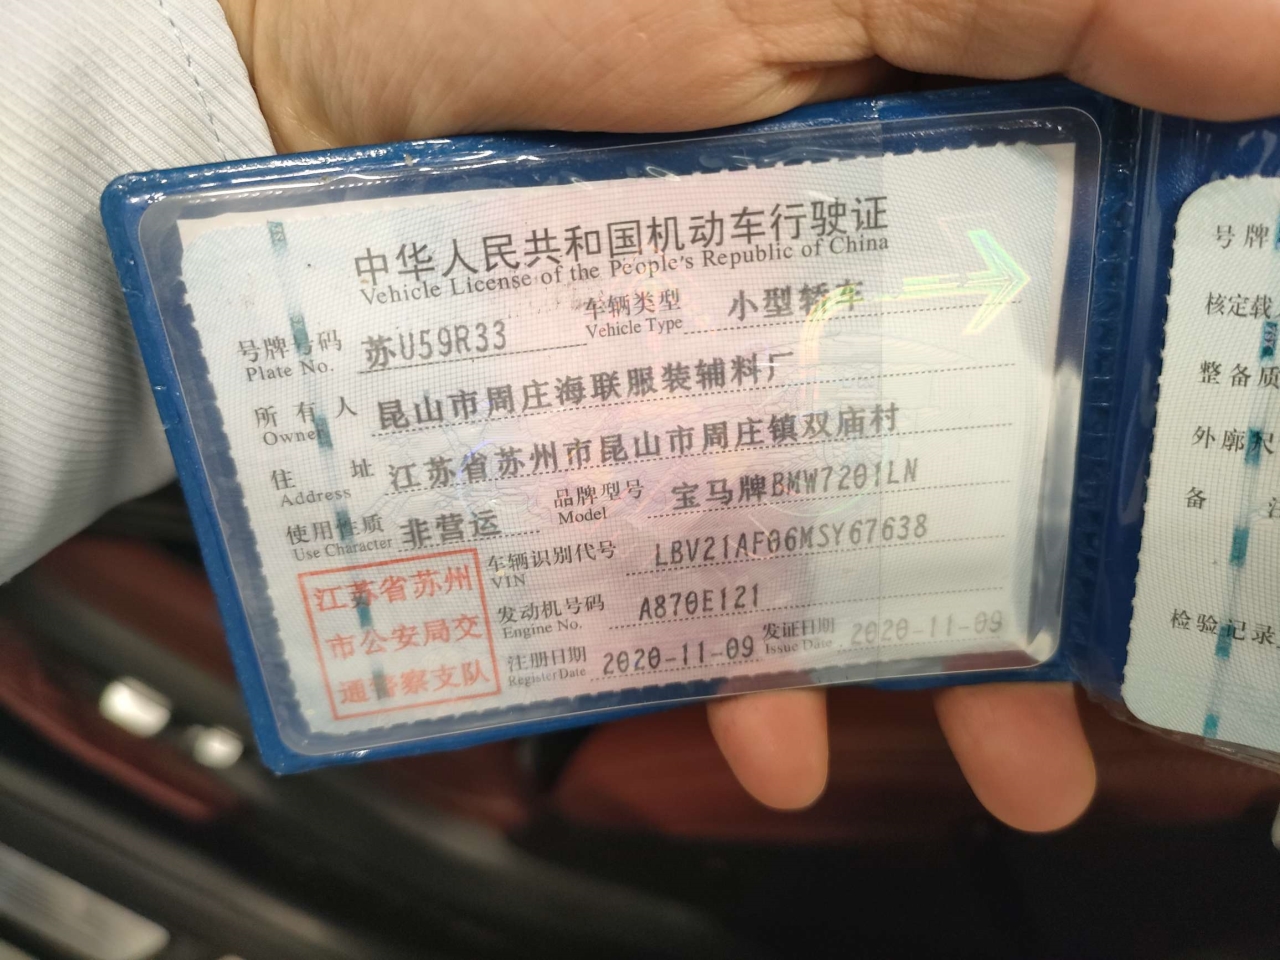 中华人民共和国机动车行驶证
Vehicle License of the People's Republic of China
号牌号码 苏U59R33 车辆类型 小型轿车
Plate No. Vehicle Type
所有人 昆山市周庄海联服装辅料厂
Owner
住址 江苏省苏州市昆山市周庄镇双庙村
Address
使用性质 非营运 品牌型号 宝马牌BMW7201LN
Use Character Model
车辆识别代号 LBV21AF06MSY67638
VIN
发动机号码 A870E121
Engine No.
注册日期 2020-11-09 发证日期 2020-11-09
Register Date Issue Date
江苏省苏州
市公安局交
通警察支队
号牌
核定载
整备质
外廓尺
备
检验记录